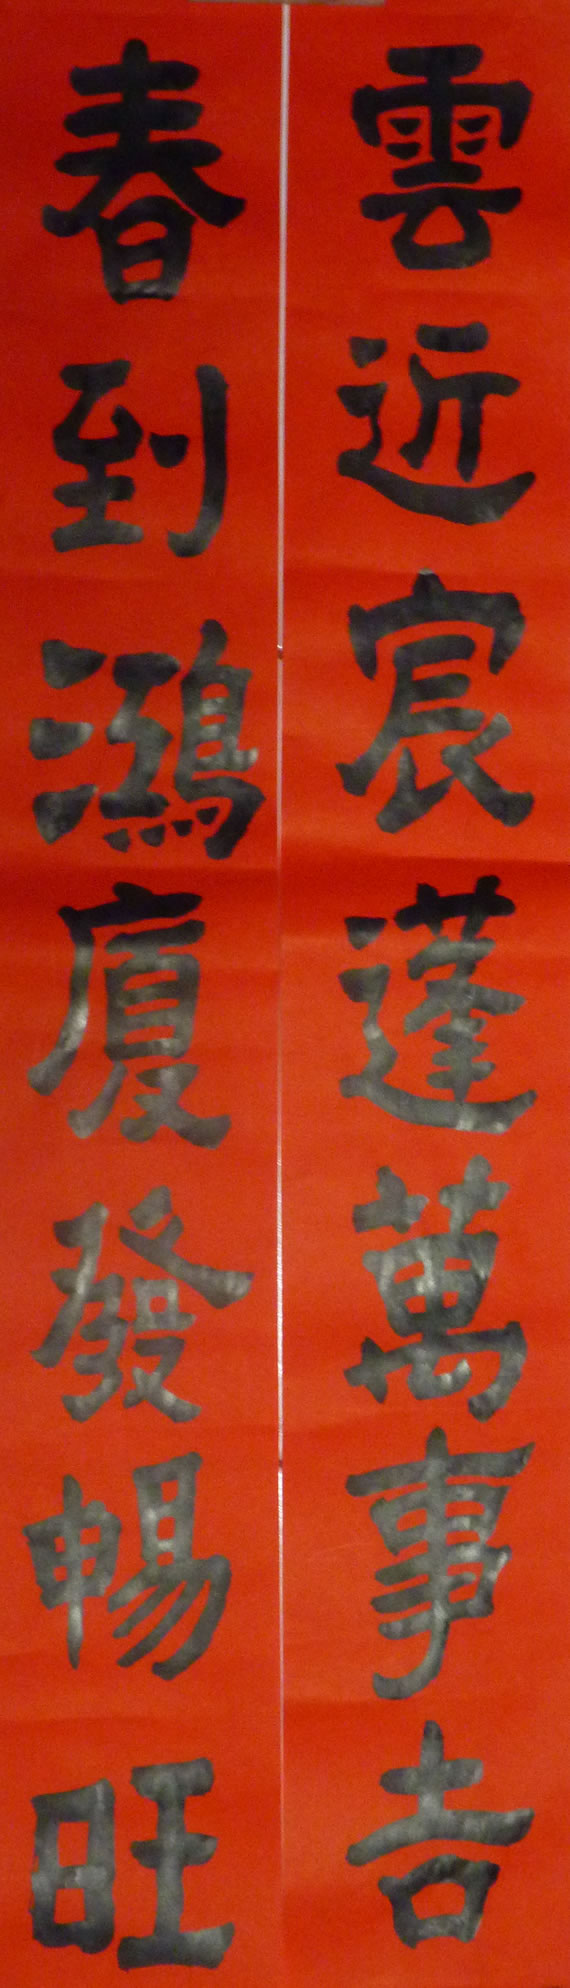 雲近宸蓬萬事吉
春到鴻廈發暢旺